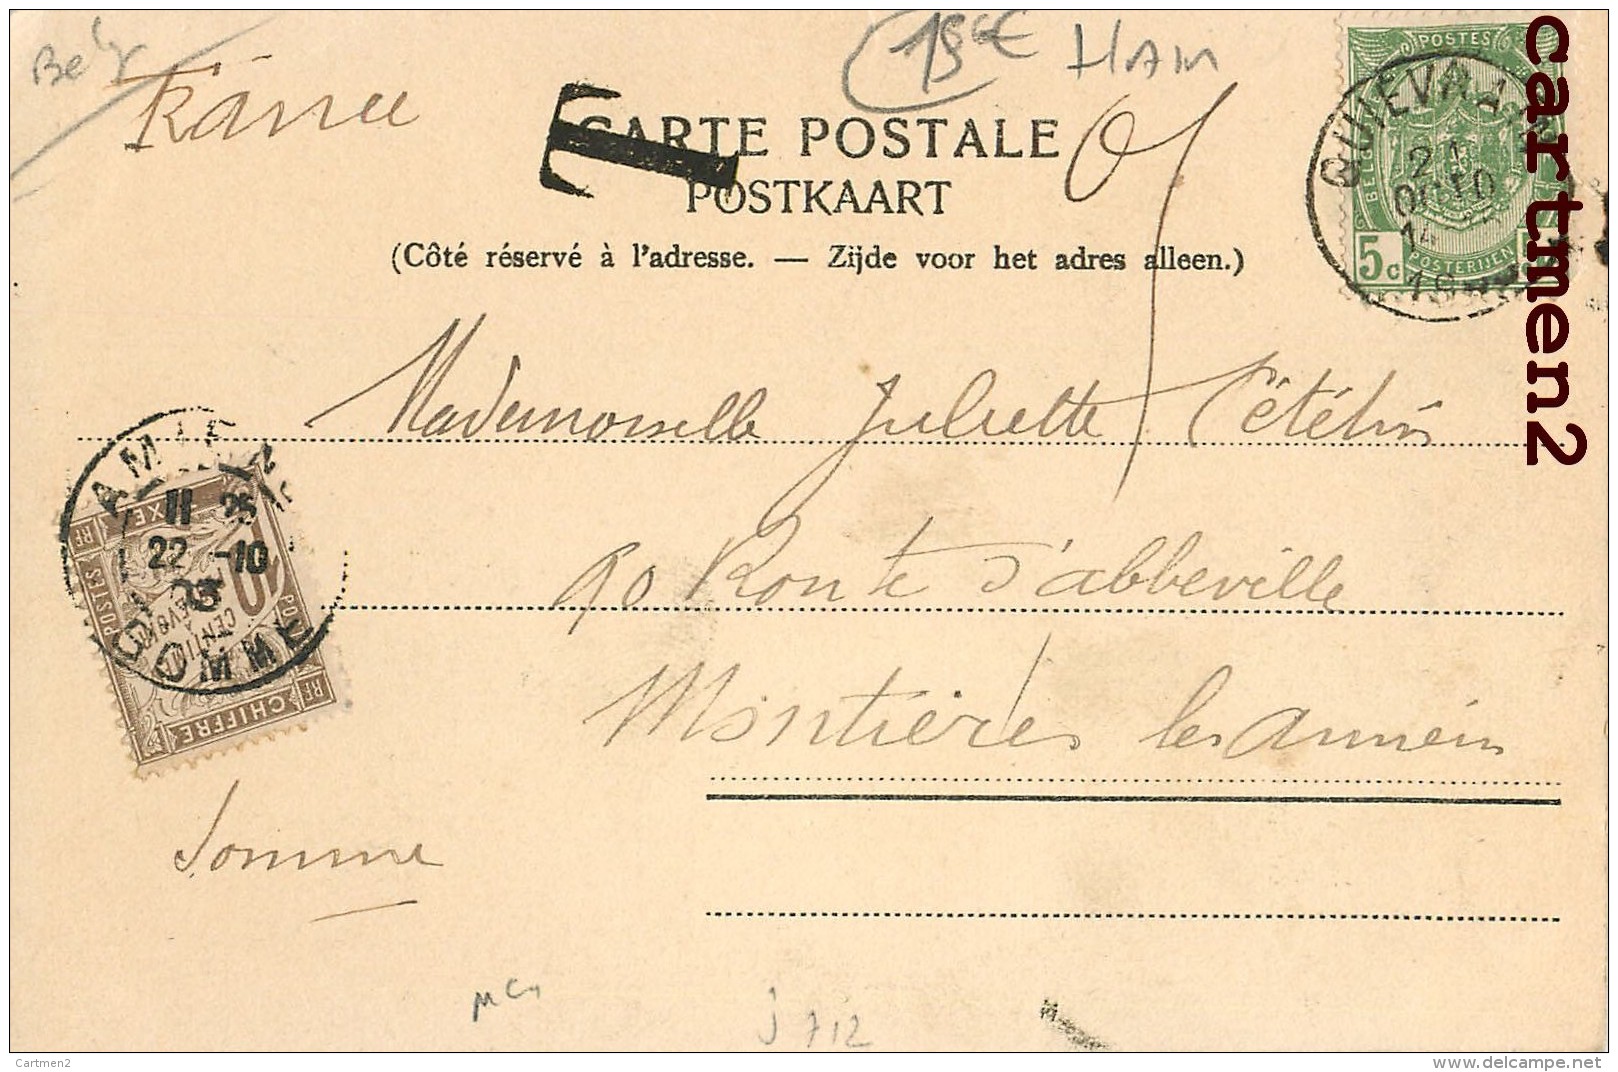 Belg
France
15€
HAM
CARTE POSTALE
POSTKAART
T
(Côté réservé à l'adresse. — Zijde voor het adres alleen.)
POSTES
BELGI
5c
POSTERIJEN
QUIEVRA
21
OCTO
14
19
cartmen2
Mademoiselle Juliette Pétélin
90 Route d'abbeville
Montières les amiens
Somme
AMIENS
II 25
22 -10
03
SOMME
CHIFFRE
TAXE
POSTES
RF
RF
10
CENTIM
J 712
Cartmen2
www.delcampe.net